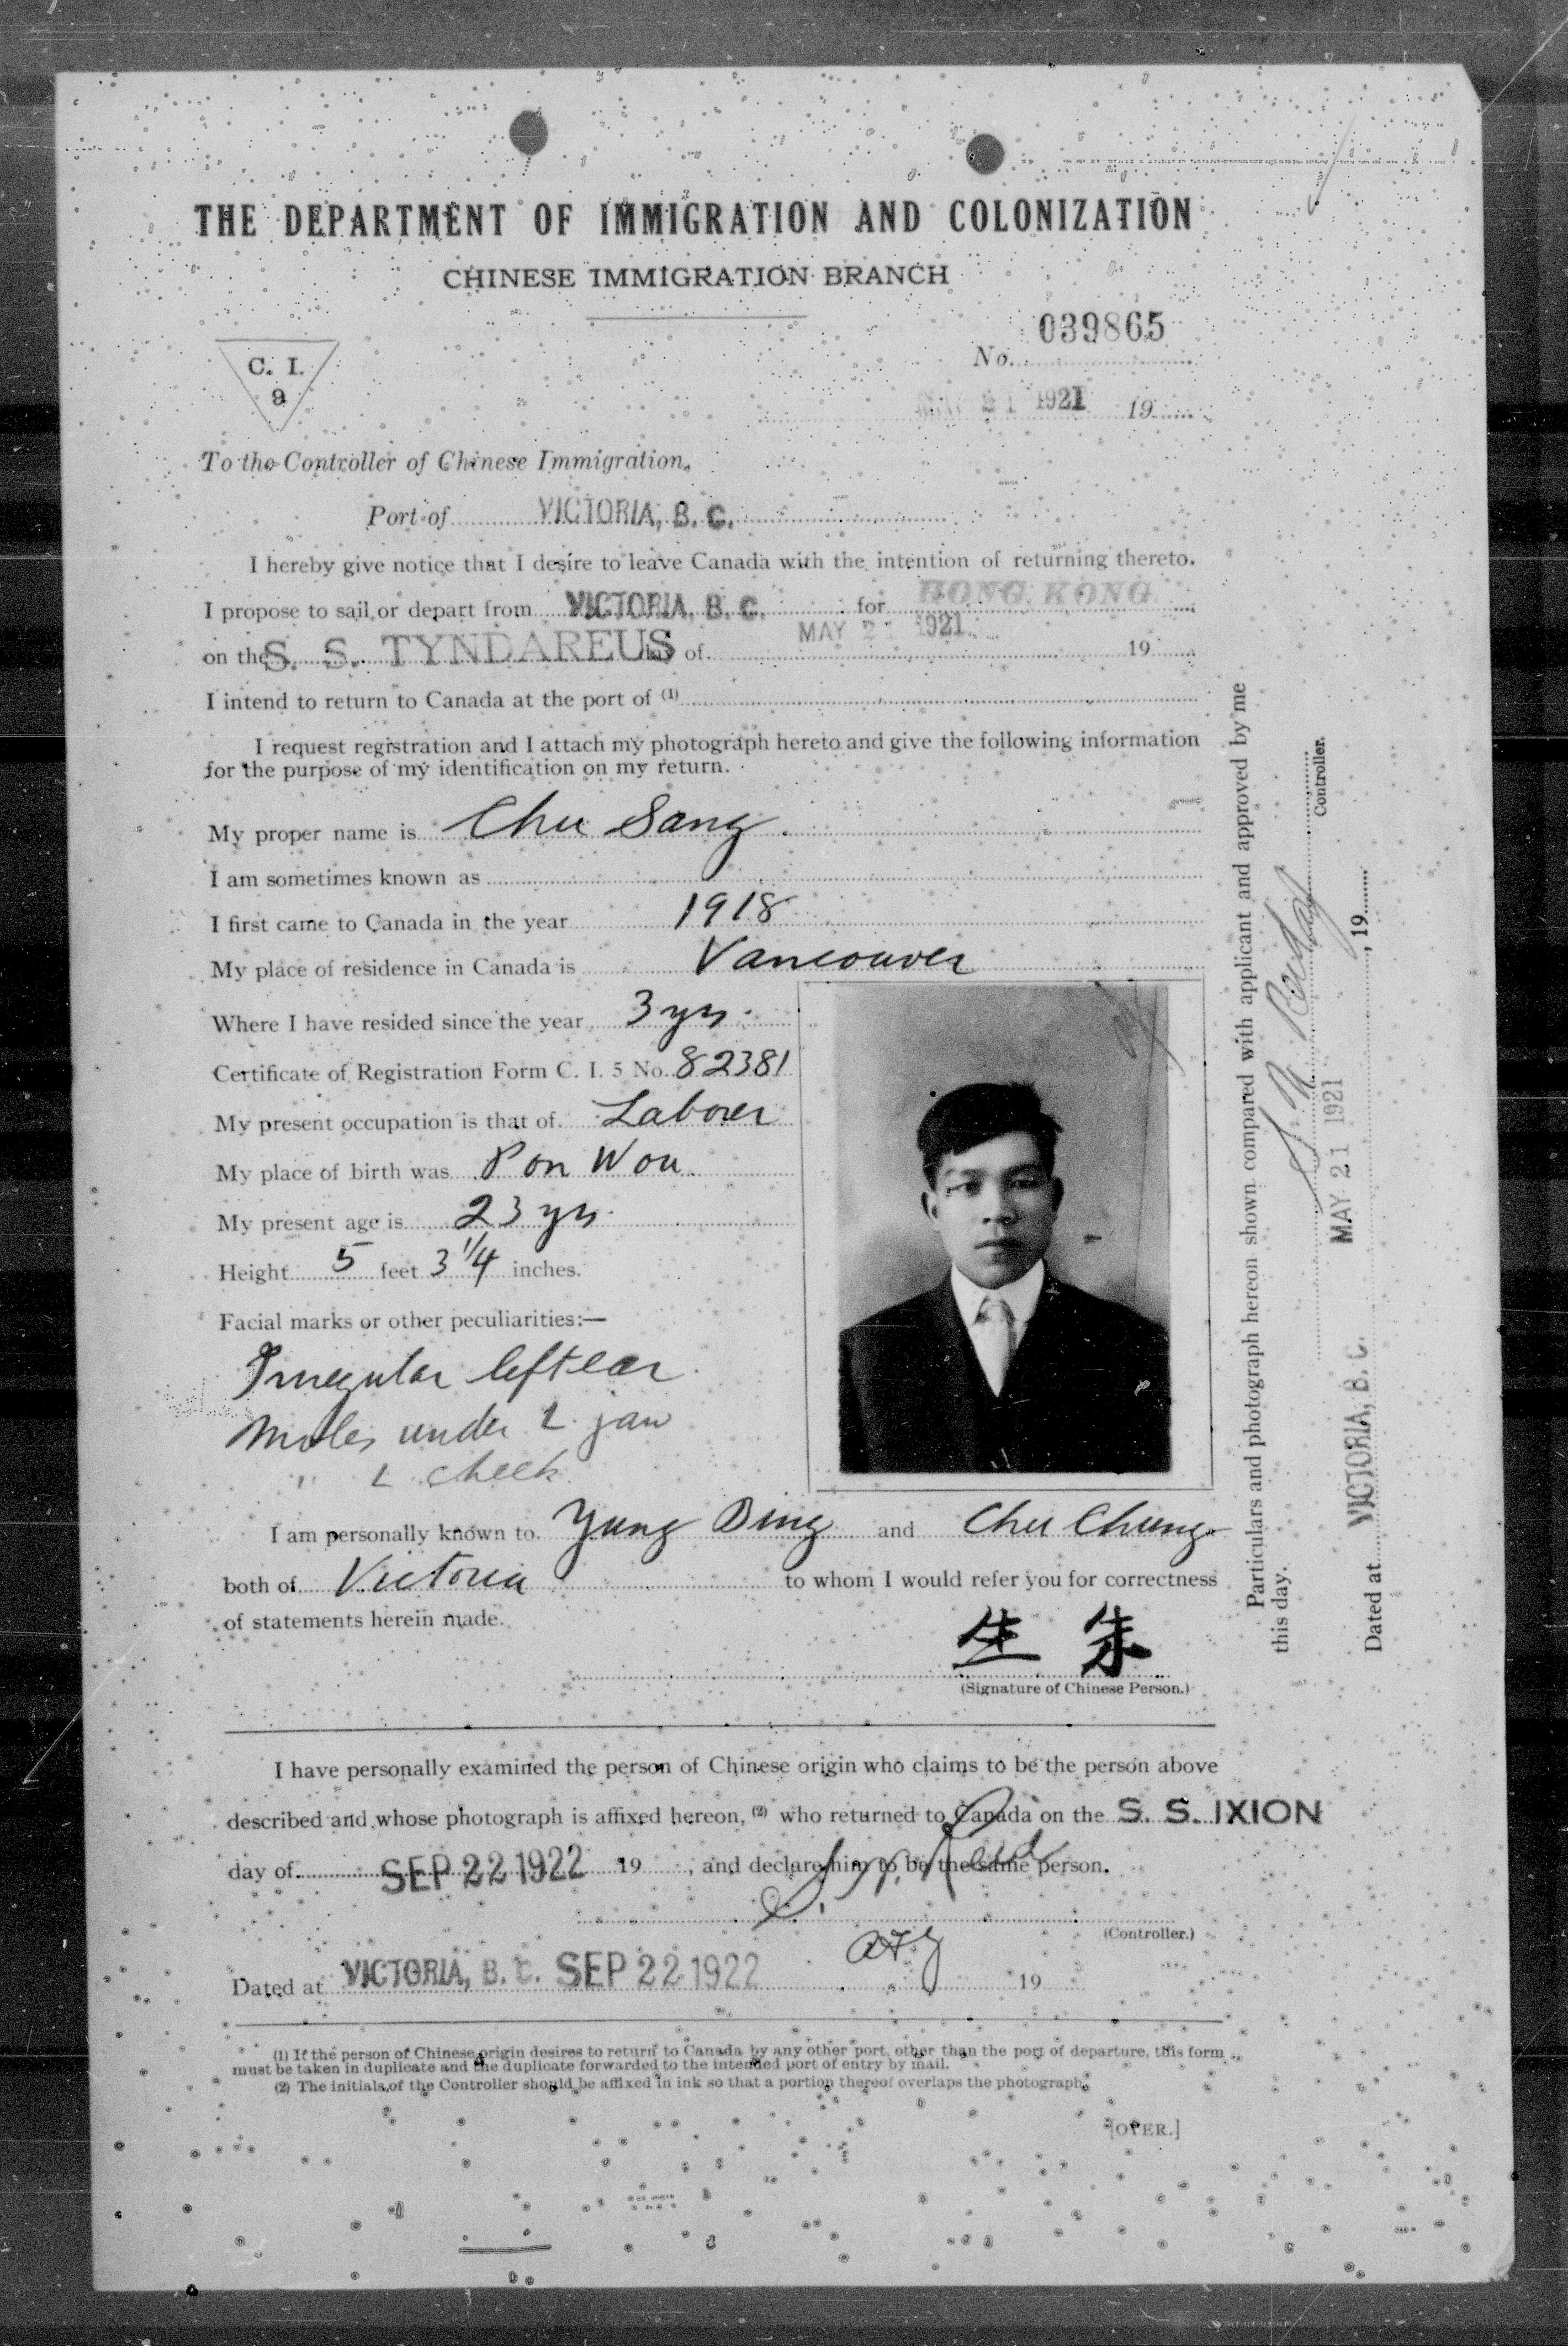 THE DEPARTMENT OF IMMIGRATION AND COLONIZATION
CHINESE IMMIGRATION BRANCH
C. I.
9
039865
No.
MAY 21 1921 19
To the Controller of Chinese Immigration,
Port of VICTORIA, B. C.
I hereby give notice that I desire to leave Canada with the intention of returning thereto.
I propose to sail or depart from VICTORIA, B. C. for HONG KONG
on the S. S. TYNDAREUS day of MAY 21 1921 19
I intend to return to Canada at the port of (1)
I request registration and I attach my photograph hereto and give the following information
for the purpose of my identification on my return.
My proper name is Chu Sang
I am sometimes known as
I first came to Canada in the year 1918
My place of residence in Canada is Vancouver
Where I have resided since the year 3 yrs.
Certificate of Registration Form C. I. 5 No. 82381
My present occupation is that of Laborer
My place of birth was Pon Wou
My present age is 23 yrs.
Height 5 feet 3 1/4 inches.
Facial marks or other peculiarities:—
Irregular left ear
Moles under L. jaw
" L cheek
I am personally known to Yung Bing and Chu Chung
both of Victoria to whom I would refer you for correctness
of statements herein made.
生 朱
(Signature of Chinese Person.)
I have personally examined the person of Chinese origin who claims to be the person above
described and whose photograph is affixed hereon, (2) who returned to Canada on the S. S. IXION
day of SEP 22 1922 19 , and declare him to be the same person.
(Controller.)
Dated at VICTORIA, B. C. SEP 22 1922 19
(1) If the person of Chinese origin desires to return to Canada by any other port, other than the port of departure, this form
must be taken in duplicate and the duplicate forwarded to the intended port of entry by mail.
(2) The initials of the Controller should be affixed in ink so that a portion thereof overlaps the photograph.
[OVER.]
Particulars and photograph hereon shown compared with applicant and approved by me
this day.
Controller.
Dated at VICTORIA, B. C. MAY 21 1921 , 19